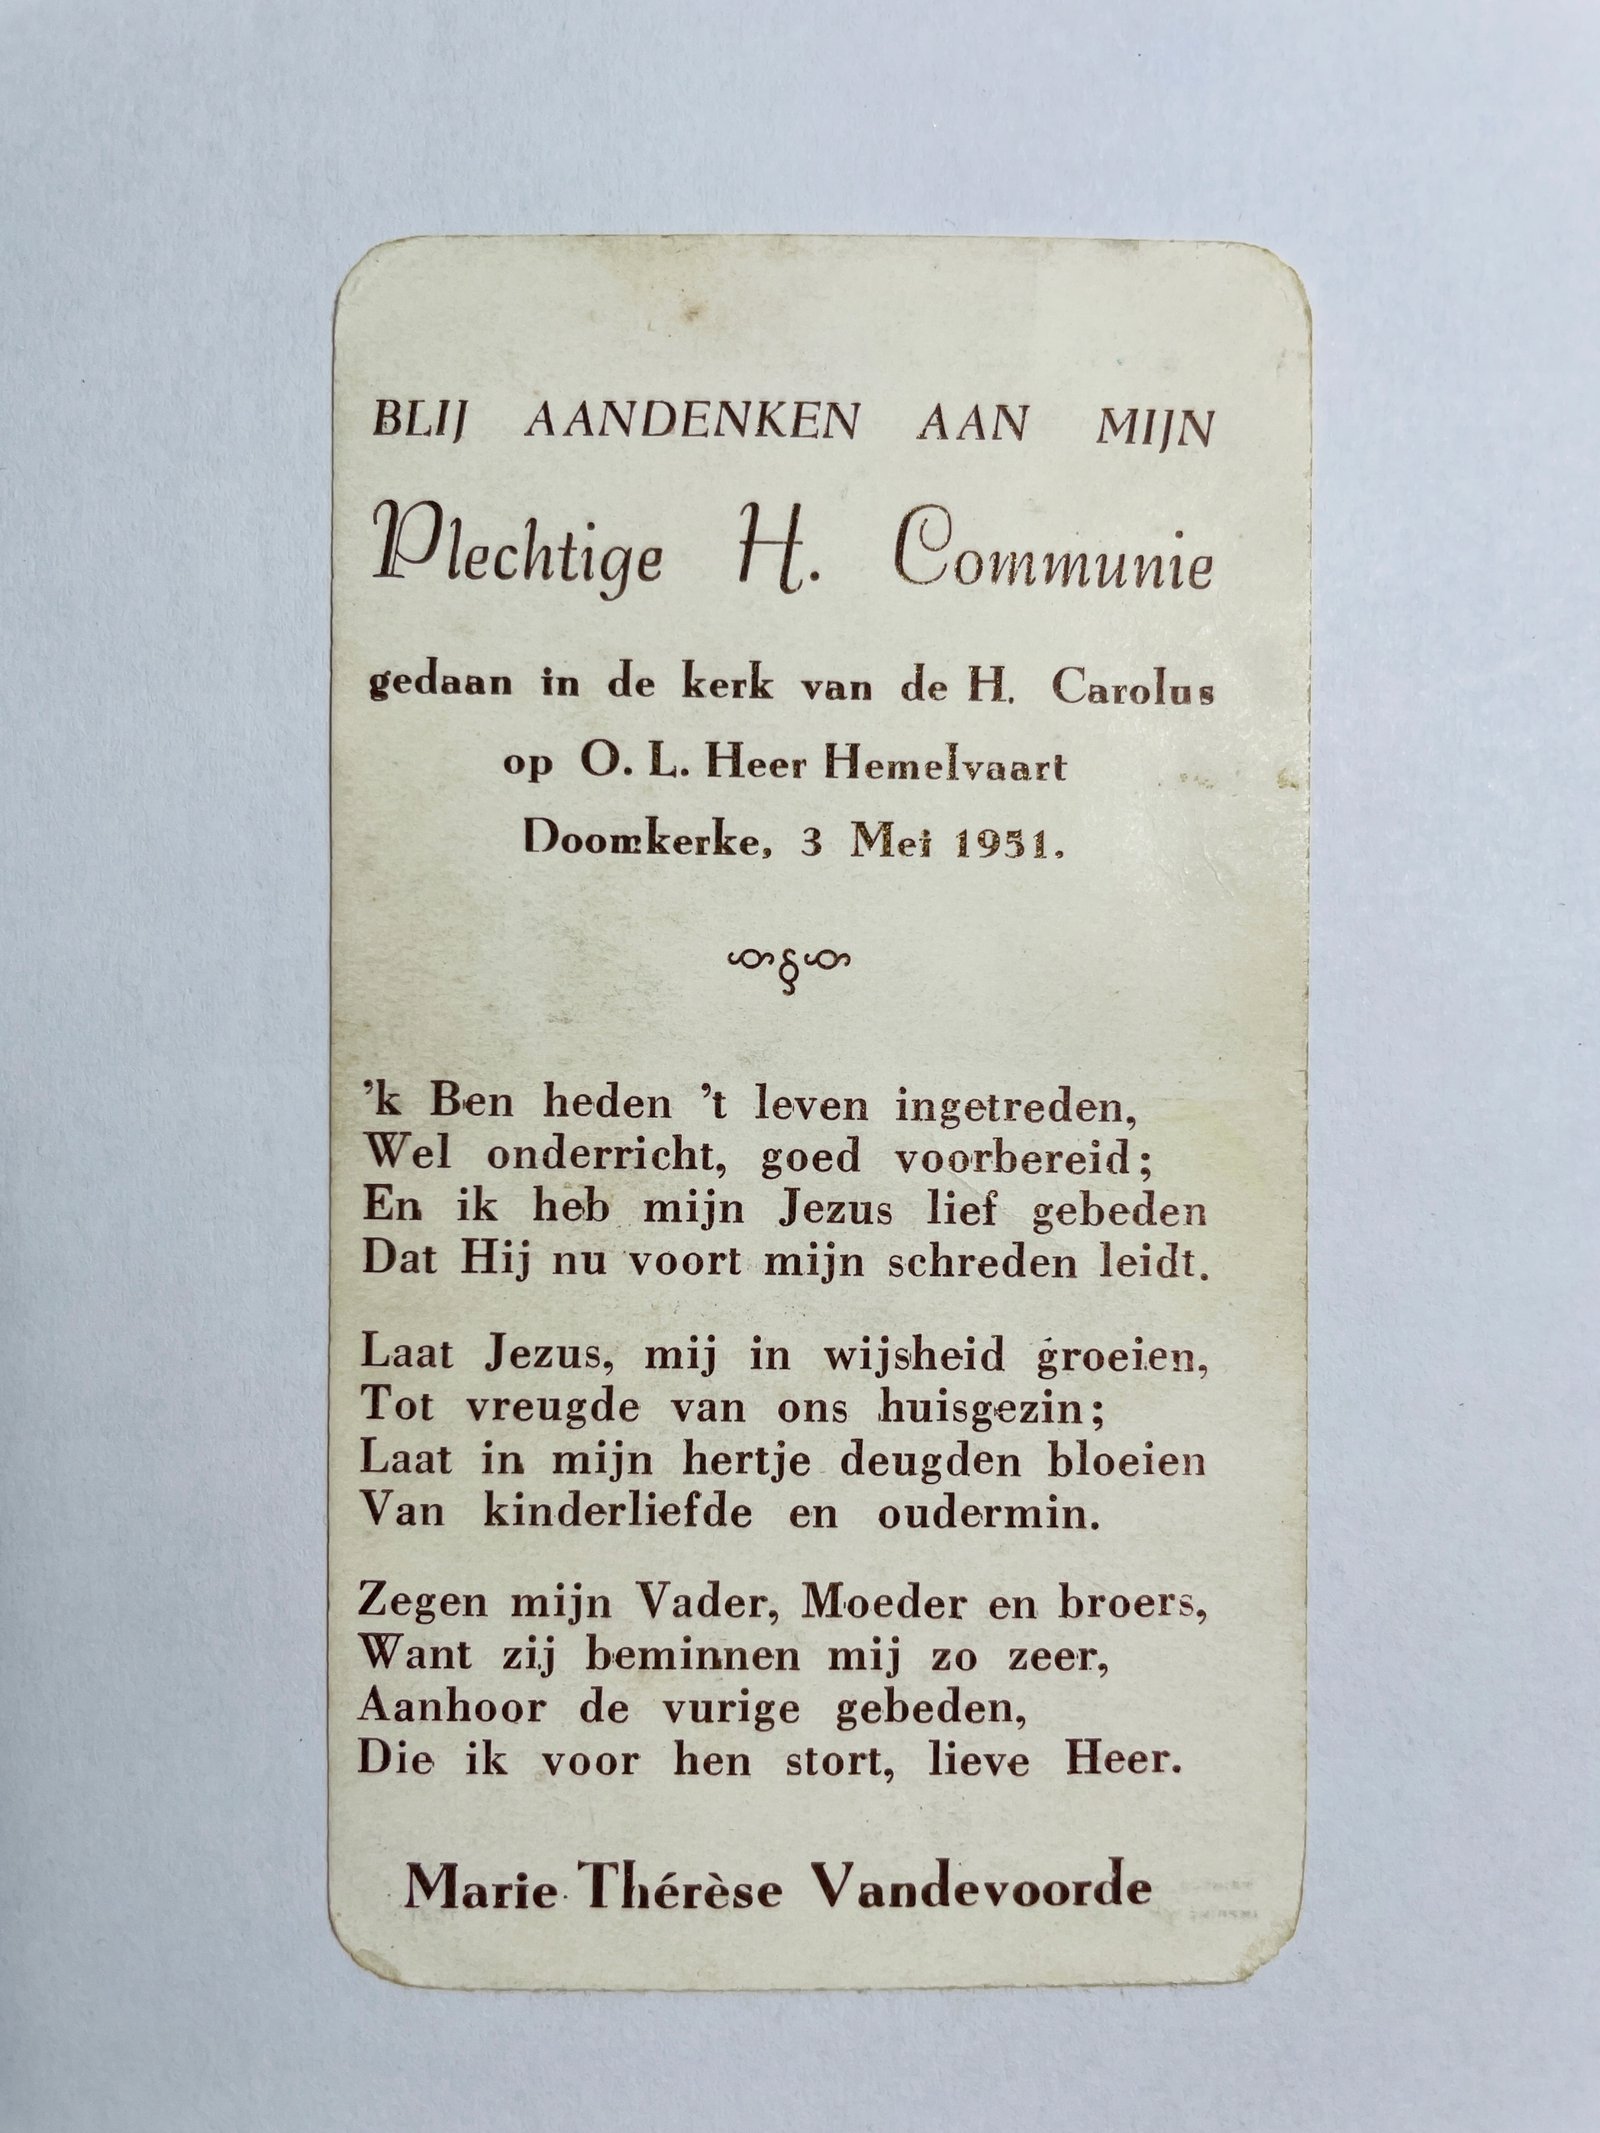 BLIJ AANDENKEN AAN MIJN
Plechtige H. Communie
gedaan in de kerk van de H. Carolus
op O. L. Heer Hemelvaart
Doomkerke, 3 Mei 1951.
'k Ben heden 't leven ingetreden,
Wel onderricht, goed voorbereid;
En ik heb mijn Jezus lief gebeden
Dat Hij nu voort mijn schreden leidt.
Laat Jezus, mij in wijsheid groeien,
Tot vreugde van ons huisgezin;
Laat in mijn hertje deugden bloeien
Van kinderliefde en oudermin.
Zegen mijn Vader, Moeder en broers,
Want zij beminnen mij zo zeer,
Aanhoor de vurige gebeden,
Die ik voor hen stort, lieve Heer.
Marie Thérèse Vandevoorde